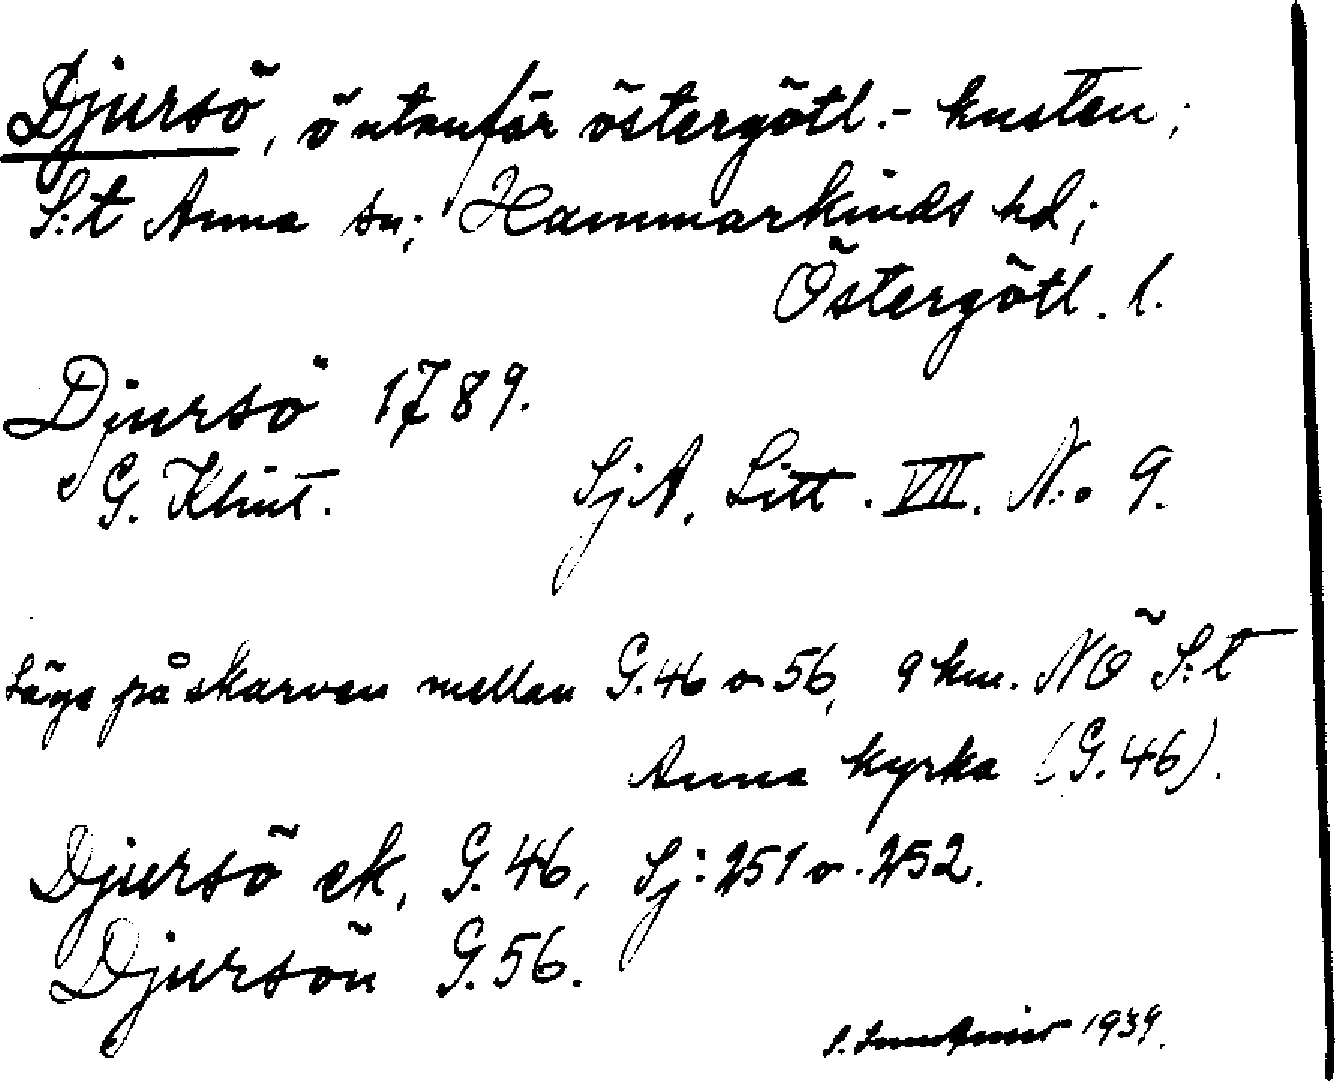 Djursö, ö utanför östergötl.- kusten;
S:t Anna sn; Hammarkinds hd;
Östergötl. l.
Djursö 1789.
G. Klint. SjA. Litt. VII. N:o 9.
Läge på skarven mellan G.46 o 56, 9 km. NÖ S:t
Anna kyrka (G.46).
Djursö ek, G.46, Sj: 251 o. 252.
Djursön G.56.
1939.